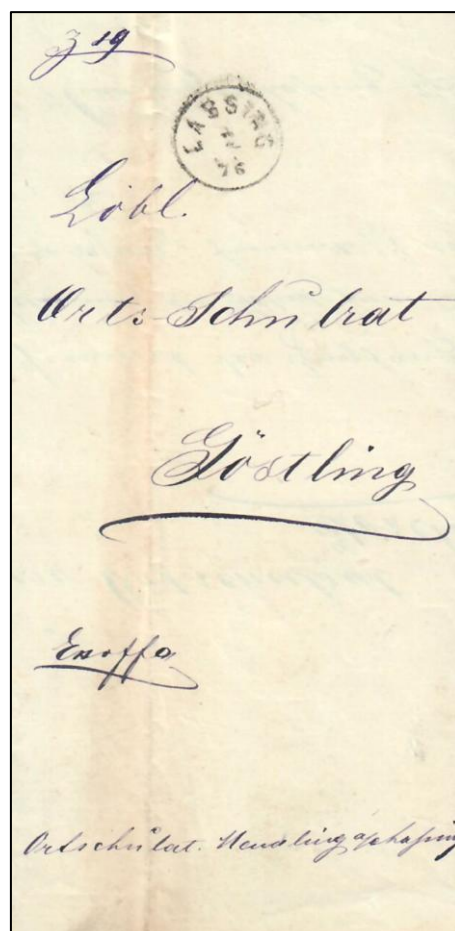 Z 19
LASSING
76
Löbl.
Orts-Schulrat
Göstling
Exoffo
Ortschulrat.